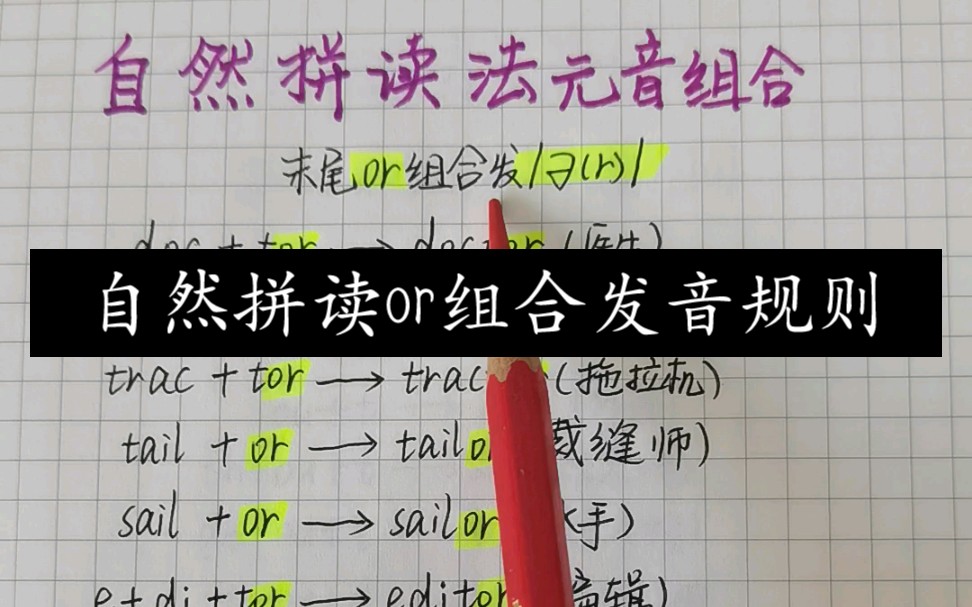 自然拼读法元音组合
末尾or组合发/ə(r)/
doc + tor → doctor (医生)
自然拼读or组合发音规则
trac + tor → trac (拖拉机)
tail + or → tailo 裁缝师)
sail + or → sailor 水手)
e + di + tor → editor 编辑)